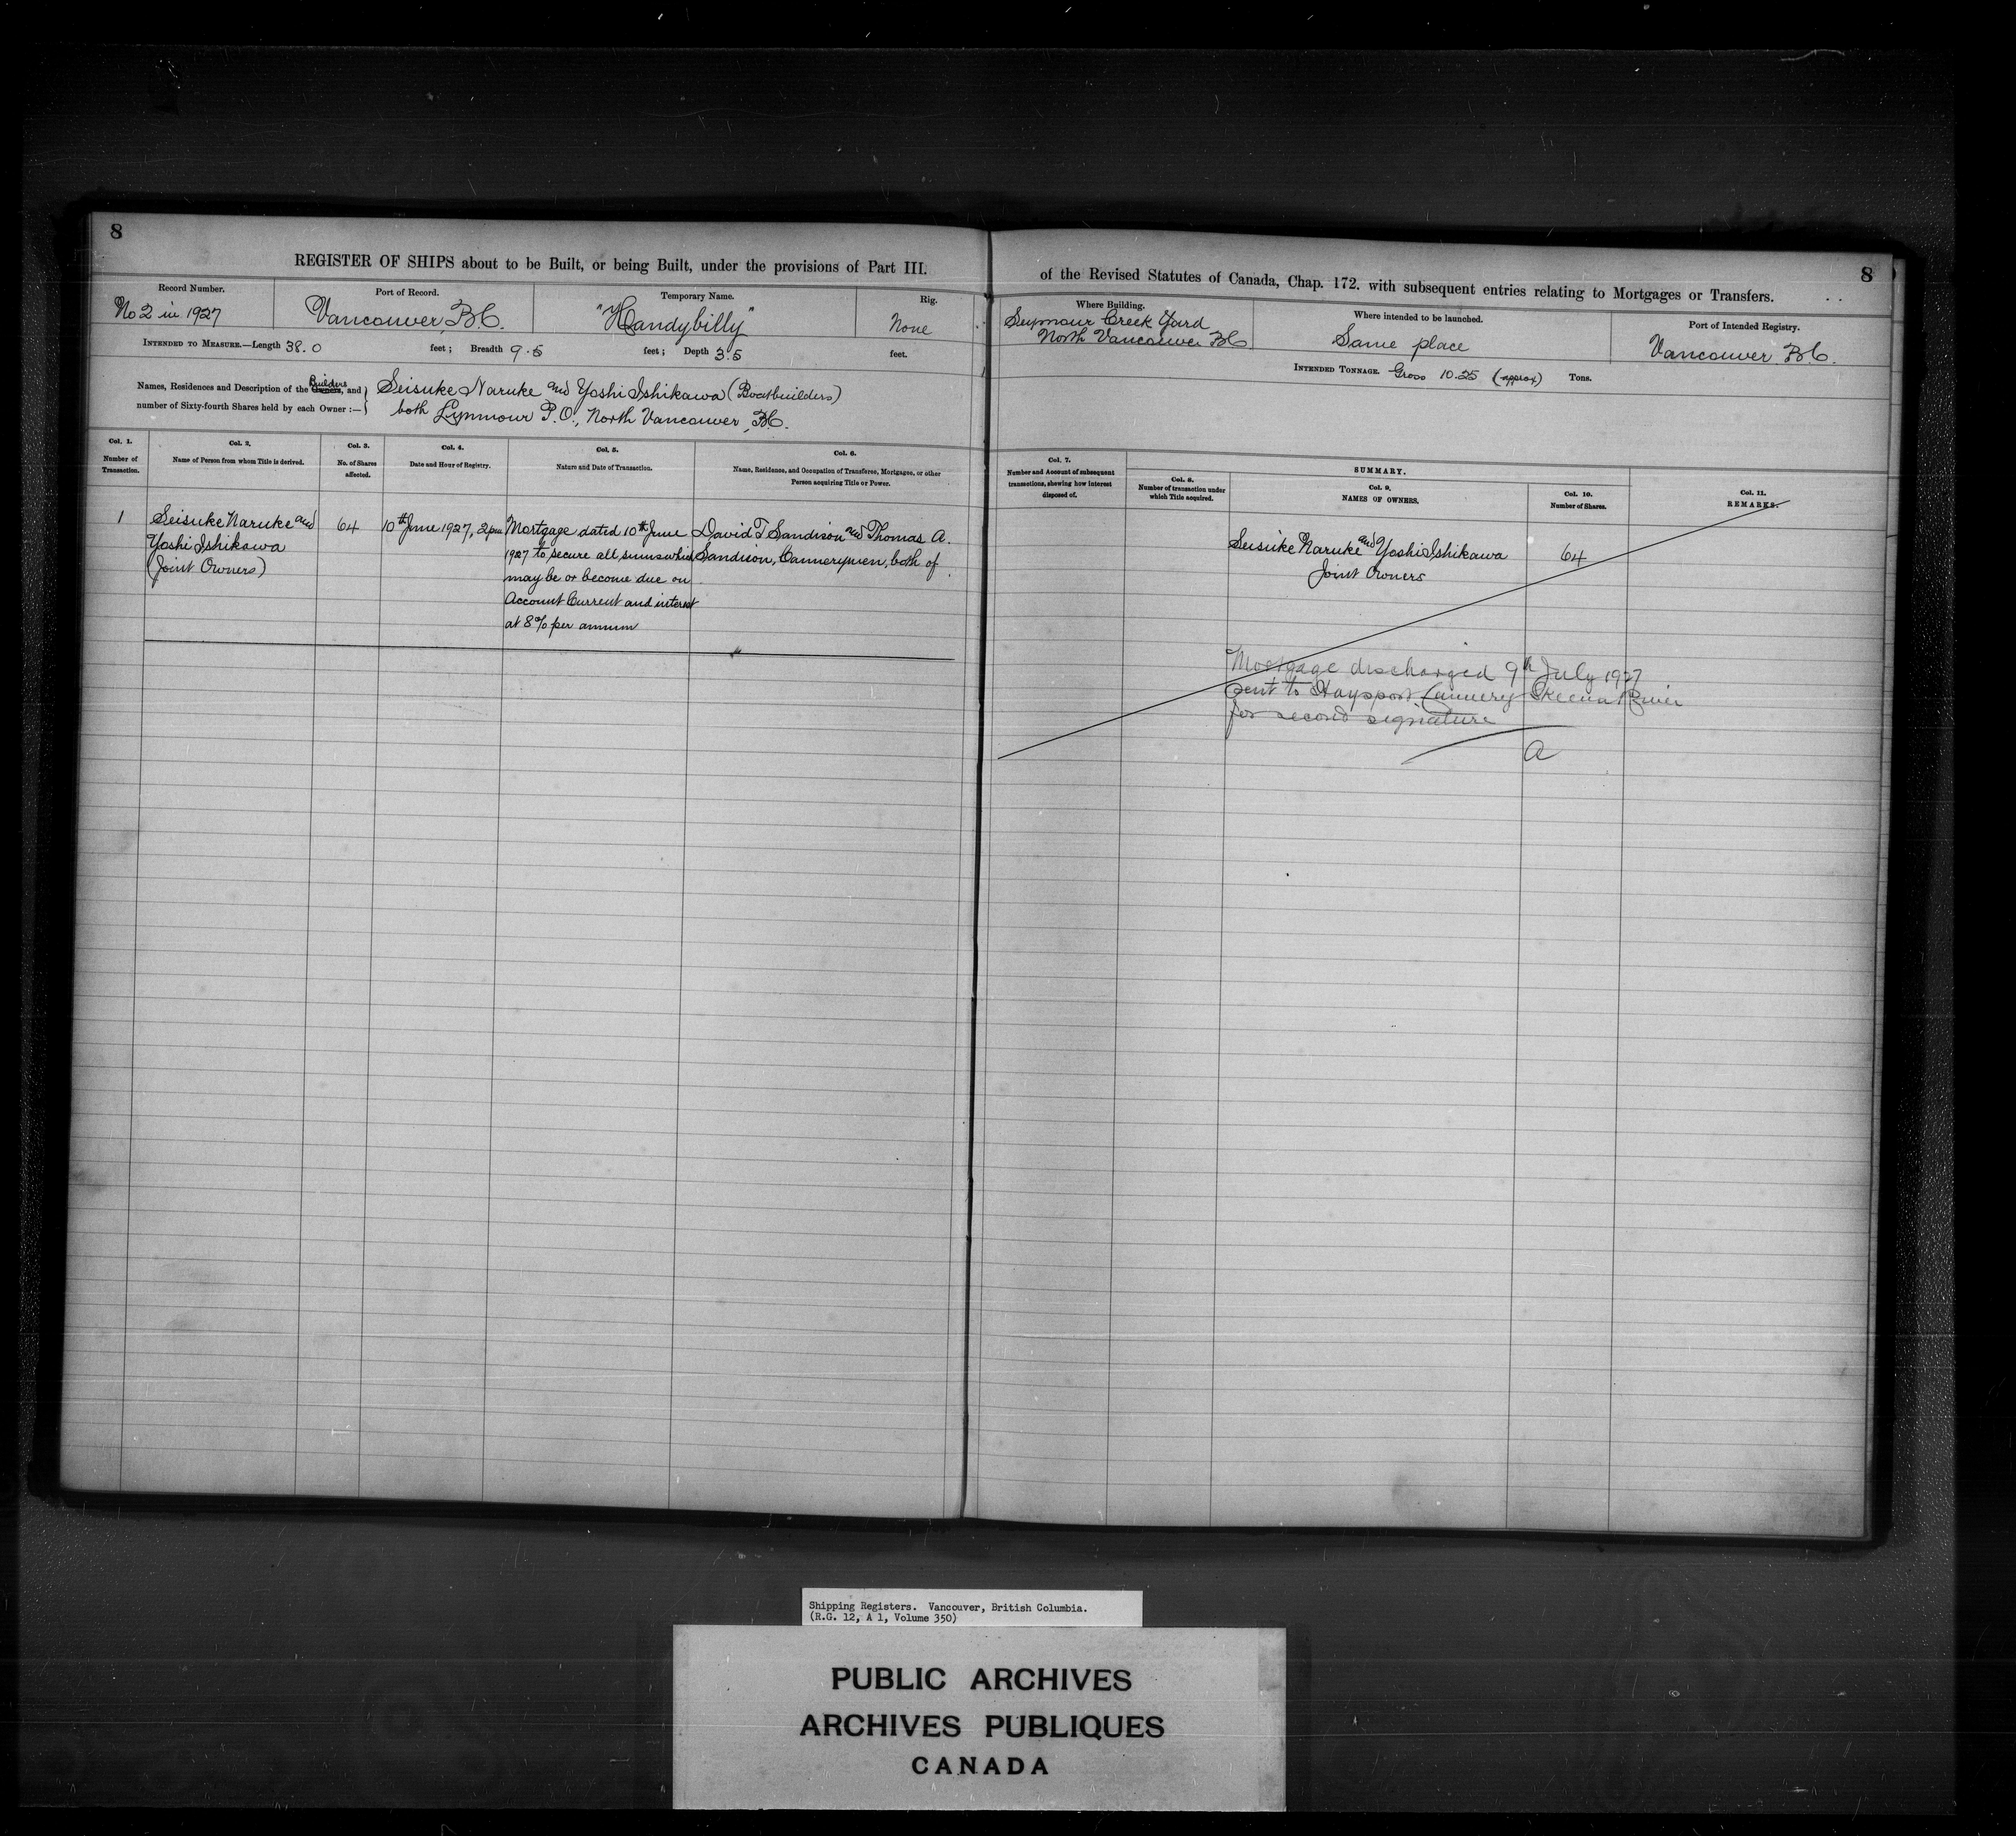 8
REGISTER OF SHIPS about to be Built, or being Built, under the provisions of Part III.
Record Number.
No 2 in 1927
Port of Record.
Vancouver, B.C.
Temporary Name.
"Handybilly"
Rig.
None
INTENDED TO MEASURE.—Length 38.0 feet; Breadth 9.5 feet; Depth 3.5 feet.
Builders
Names, Residences and Description of the Owners, and } Seisuke Naruke and Yoshi Ishikawa (Boatbuilders)
number of Sixty-fourth Shares held by each Owner :— } both Lynnmour P.O., North Vancouver, B.C.
Col. 1.
Number of
Transaction.
Col. 2.
Name of Person from whom Title is derived.
Col. 3.
No. of Shares
affected.
Col. 4.
Date and Hour of Registry.
Col. 5.
Nature and Date of Transaction.
Col. 6.
Name, Residence, and Occupation of Transferee, Mortgagee, or other
Person acquiring Title or Power.
1
Seisuke Naruke and
Yoshi Ishikawa
(Joint Owners)
64
10th June 1927, 2pm
Mortgage dated 10th June
1927 to secure all sums which
may be or become due on
Account Current and interest
at 8% per annum
David T Sandison and Thomas A.
Sandison, Cannerymen, both of
8
of the Revised Statutes of Canada, Chap. 172. with subsequent entries relating to Mortgages or Transfers.
Where Building.
Seymour Creek Yard
North Vancouver BC
Where intended to be launched.
Same place
Port of Intended Registry.
Vancouver B.C.
INTENDED TONNAGE. Gross 10.25 (approx) Tons.
Col. 7.
Number and Account of subsequent
transactions, shewing how interest
disposed of.
SUMMARY.
Col. 8.
Number of transaction under
which Title acquired.
Col. 9.
NAMES OF OWNERS.
Col. 10.
Number of Shares.
Col. 11.
REMARKS.
Seisuke Naruke and Yoshi Ishikawa
Joint Owners
64
Mortgage discharged 9th July 1927
sent to Haysport Cannery Skeena River
for second signature
a
Shipping Registers. Vancouver, British Columbia.
(R.G. 12, A 1, Volume 350)
PUBLIC ARCHIVES
ARCHIVES PUBLIQUES
CANADA